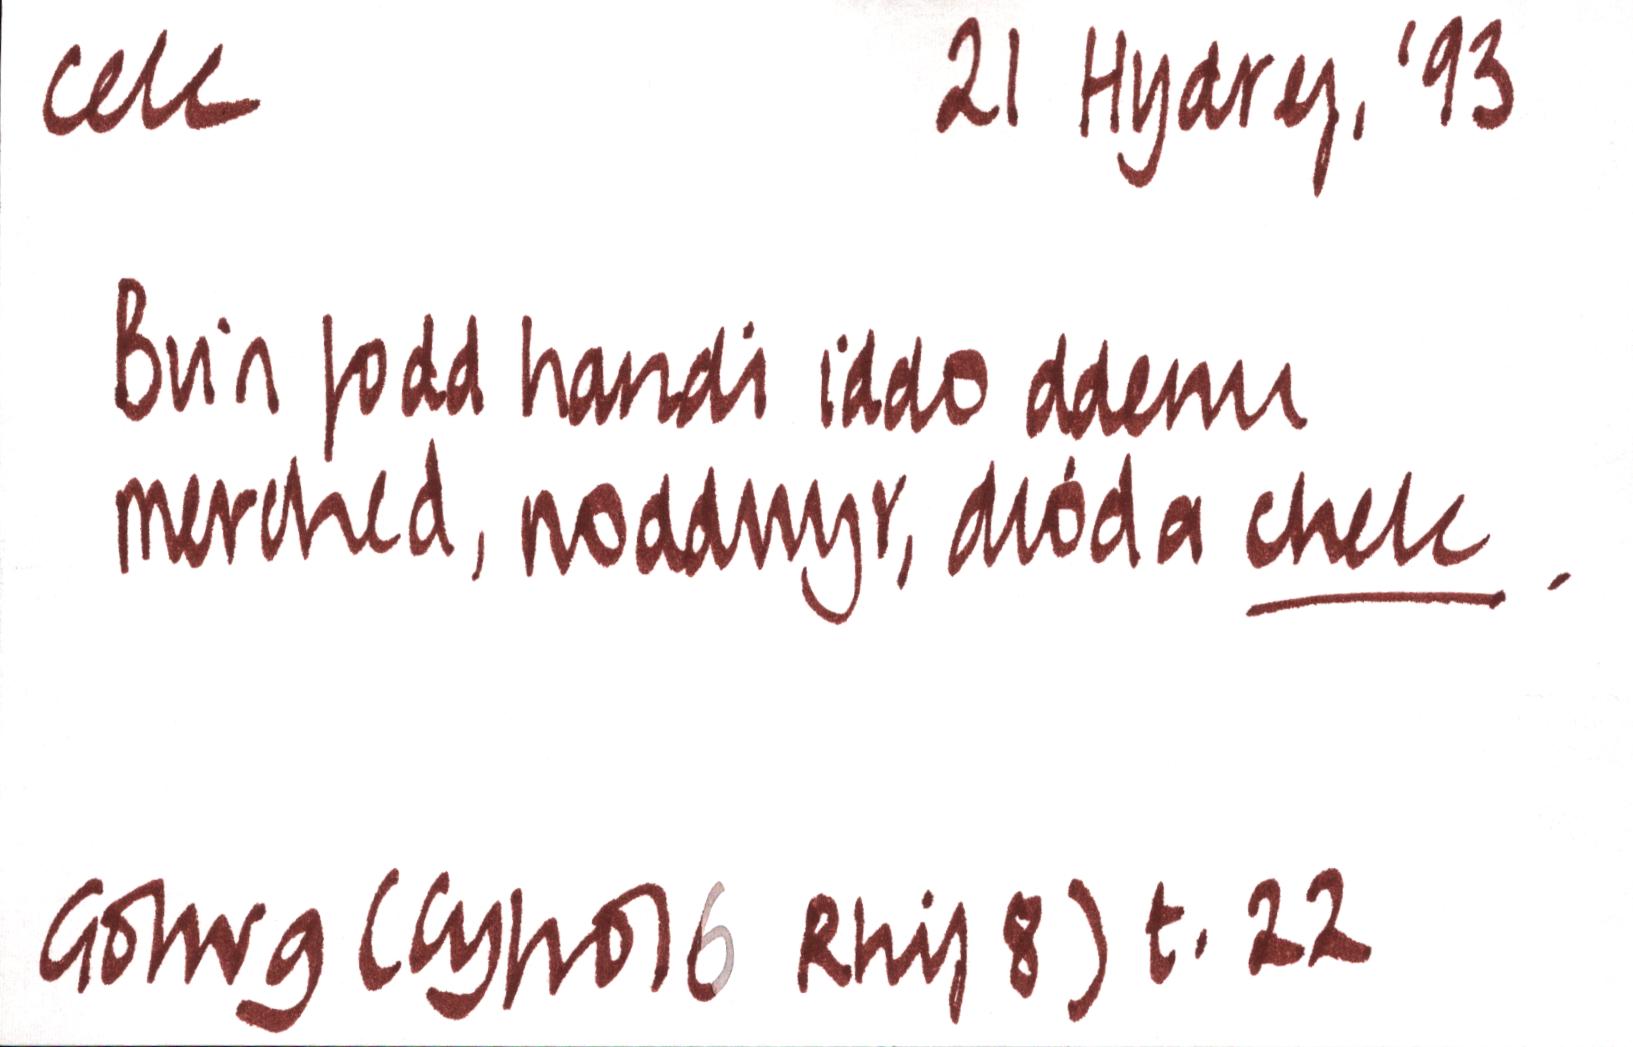 celc
21 Hydref, '93
Bu'n fodd handi iddo ddenu
merched, noddwyr, diod a chelc.
Golwg (Cyfrol 6 Rhif 8) t. 22